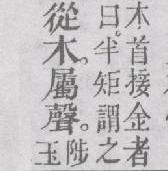 木首接金者
曰。半矩謂之
從木。屬聲。
陟
玉